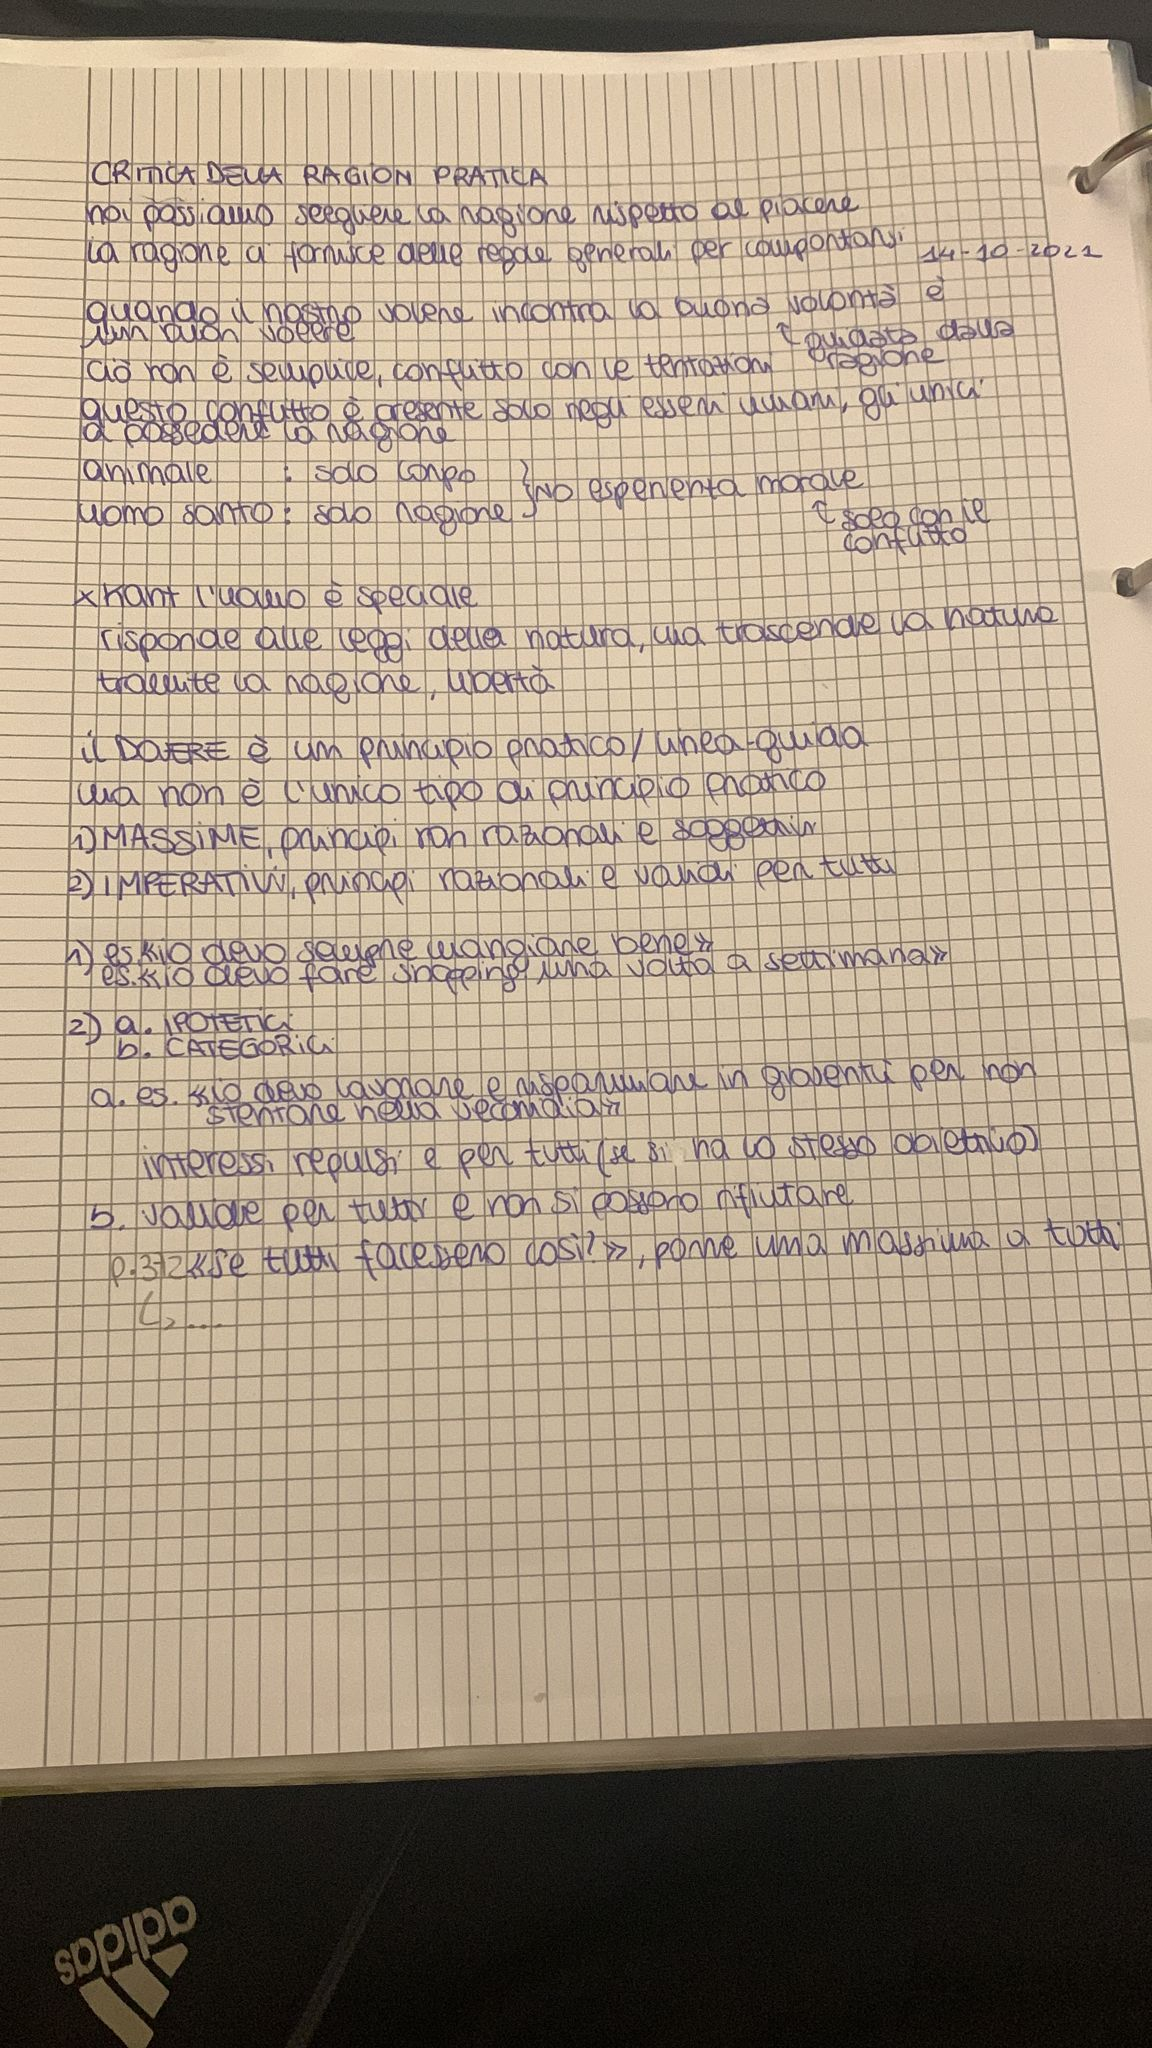 CRITICA DELLA RAGION PRATICA
noi possiamo scegliere la ragione rispetto al piacere
la ragione ci fornisce delle regole generali per comportarsi
14-10-2021
quando il nostro volere incontra la buona volontà è
un buon volere
↑ guidata dalla
ragione
ciò non è semplice, conflitto con le tentazioni
questo conflitto è presente solo negli esseri umani, gli unici
a possedere la ragione
animale : solo corpo
uomo santo: solo ragione } no esperienza morale
↑ solo con il
conflitto
x Kant l'uomo è speciale
risponde alle leggi della natura, ma trascende la natura
tramite la ragione, libertà
il DOVERE è un principio pratico/linea-guida
ma non è l'unico tipo di principio pratico
1) MASSIME, principi non razionali e soggettivi
2) IMPERATIVI, principi razionali e validi per tutti
1) es. «io devo sempre mangiare bene»
es. «io devo fare shopping una volta a settimana»
2) a. IPOTETICI
b. CATEGORICI
a. es. «io devo lavorare e risparmiare in gioventù per non
stentare nella vecchiaia»
interessi repulsi e per tutti (se si ha lo stesso obiettivo)
b. valide per tutti e non si possono rifiutare
p.312 «se tutti facessero così?», porre una massima a tutti
↳ ...
adidas